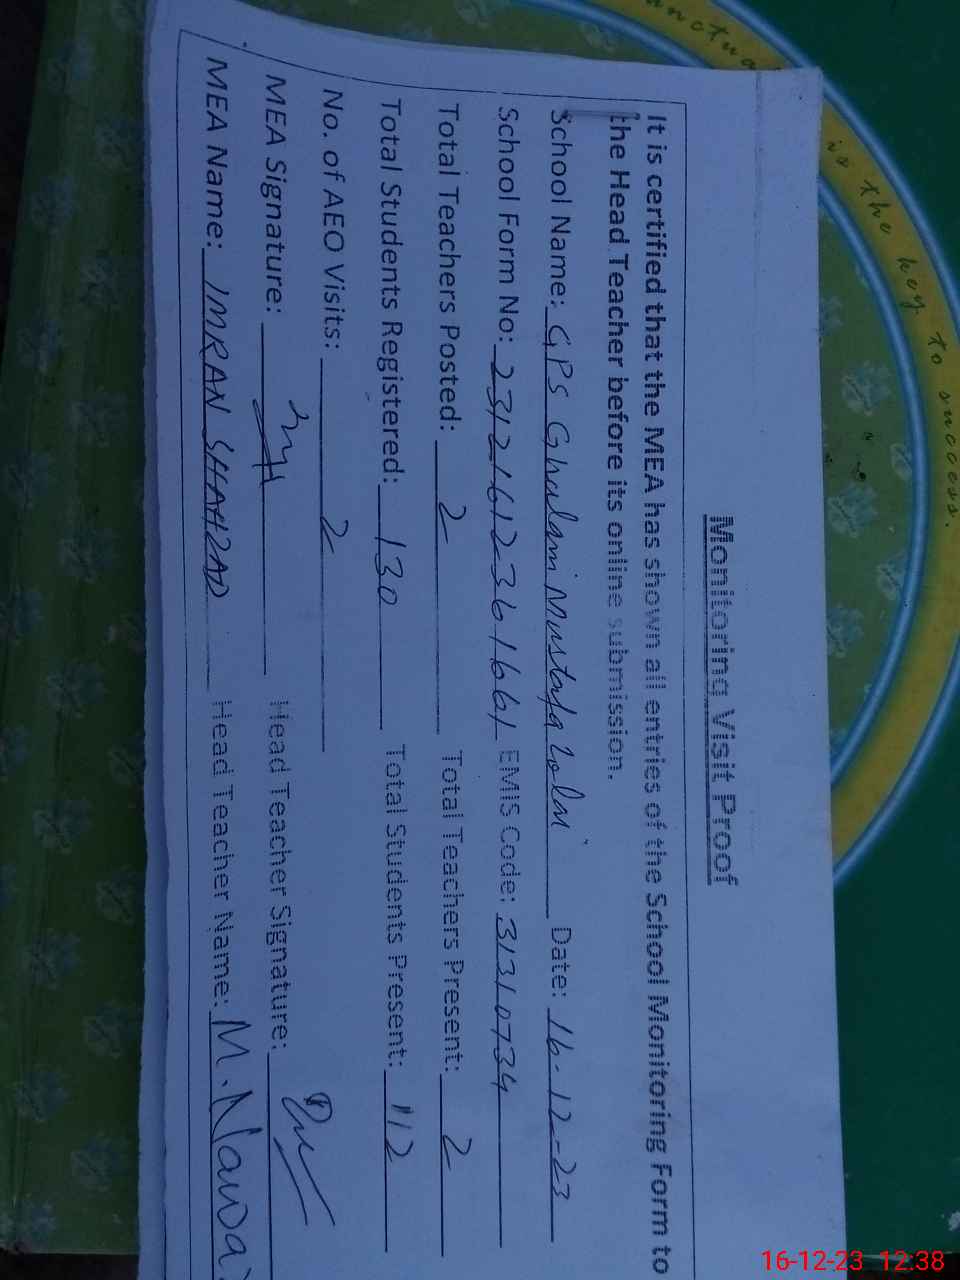 Monitoring Visit Proof
It is certified that the MEA has shown all entries of the School Monitoring Form to
the Head Teacher before its online submission.
School Name: GPS Ghulam Mustafa Date: 16-12-23
School Form No: 23121612361661 EMIS Code: 31310734
Total Teachers Posted: 2 Total Teachers Present: 2
Total Students Registered: 130 Total Students Present: 112
No. of AEO Visits: 2
MEA Signature: Head Teacher Signature:
MEA Name: IMRAN SHAHZAD Head Teacher Name: M. Nawaz
is the key to success.
16-12-23 12:38